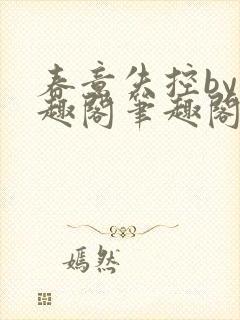 春意失控by
趣阁笔趣阁
嫣然